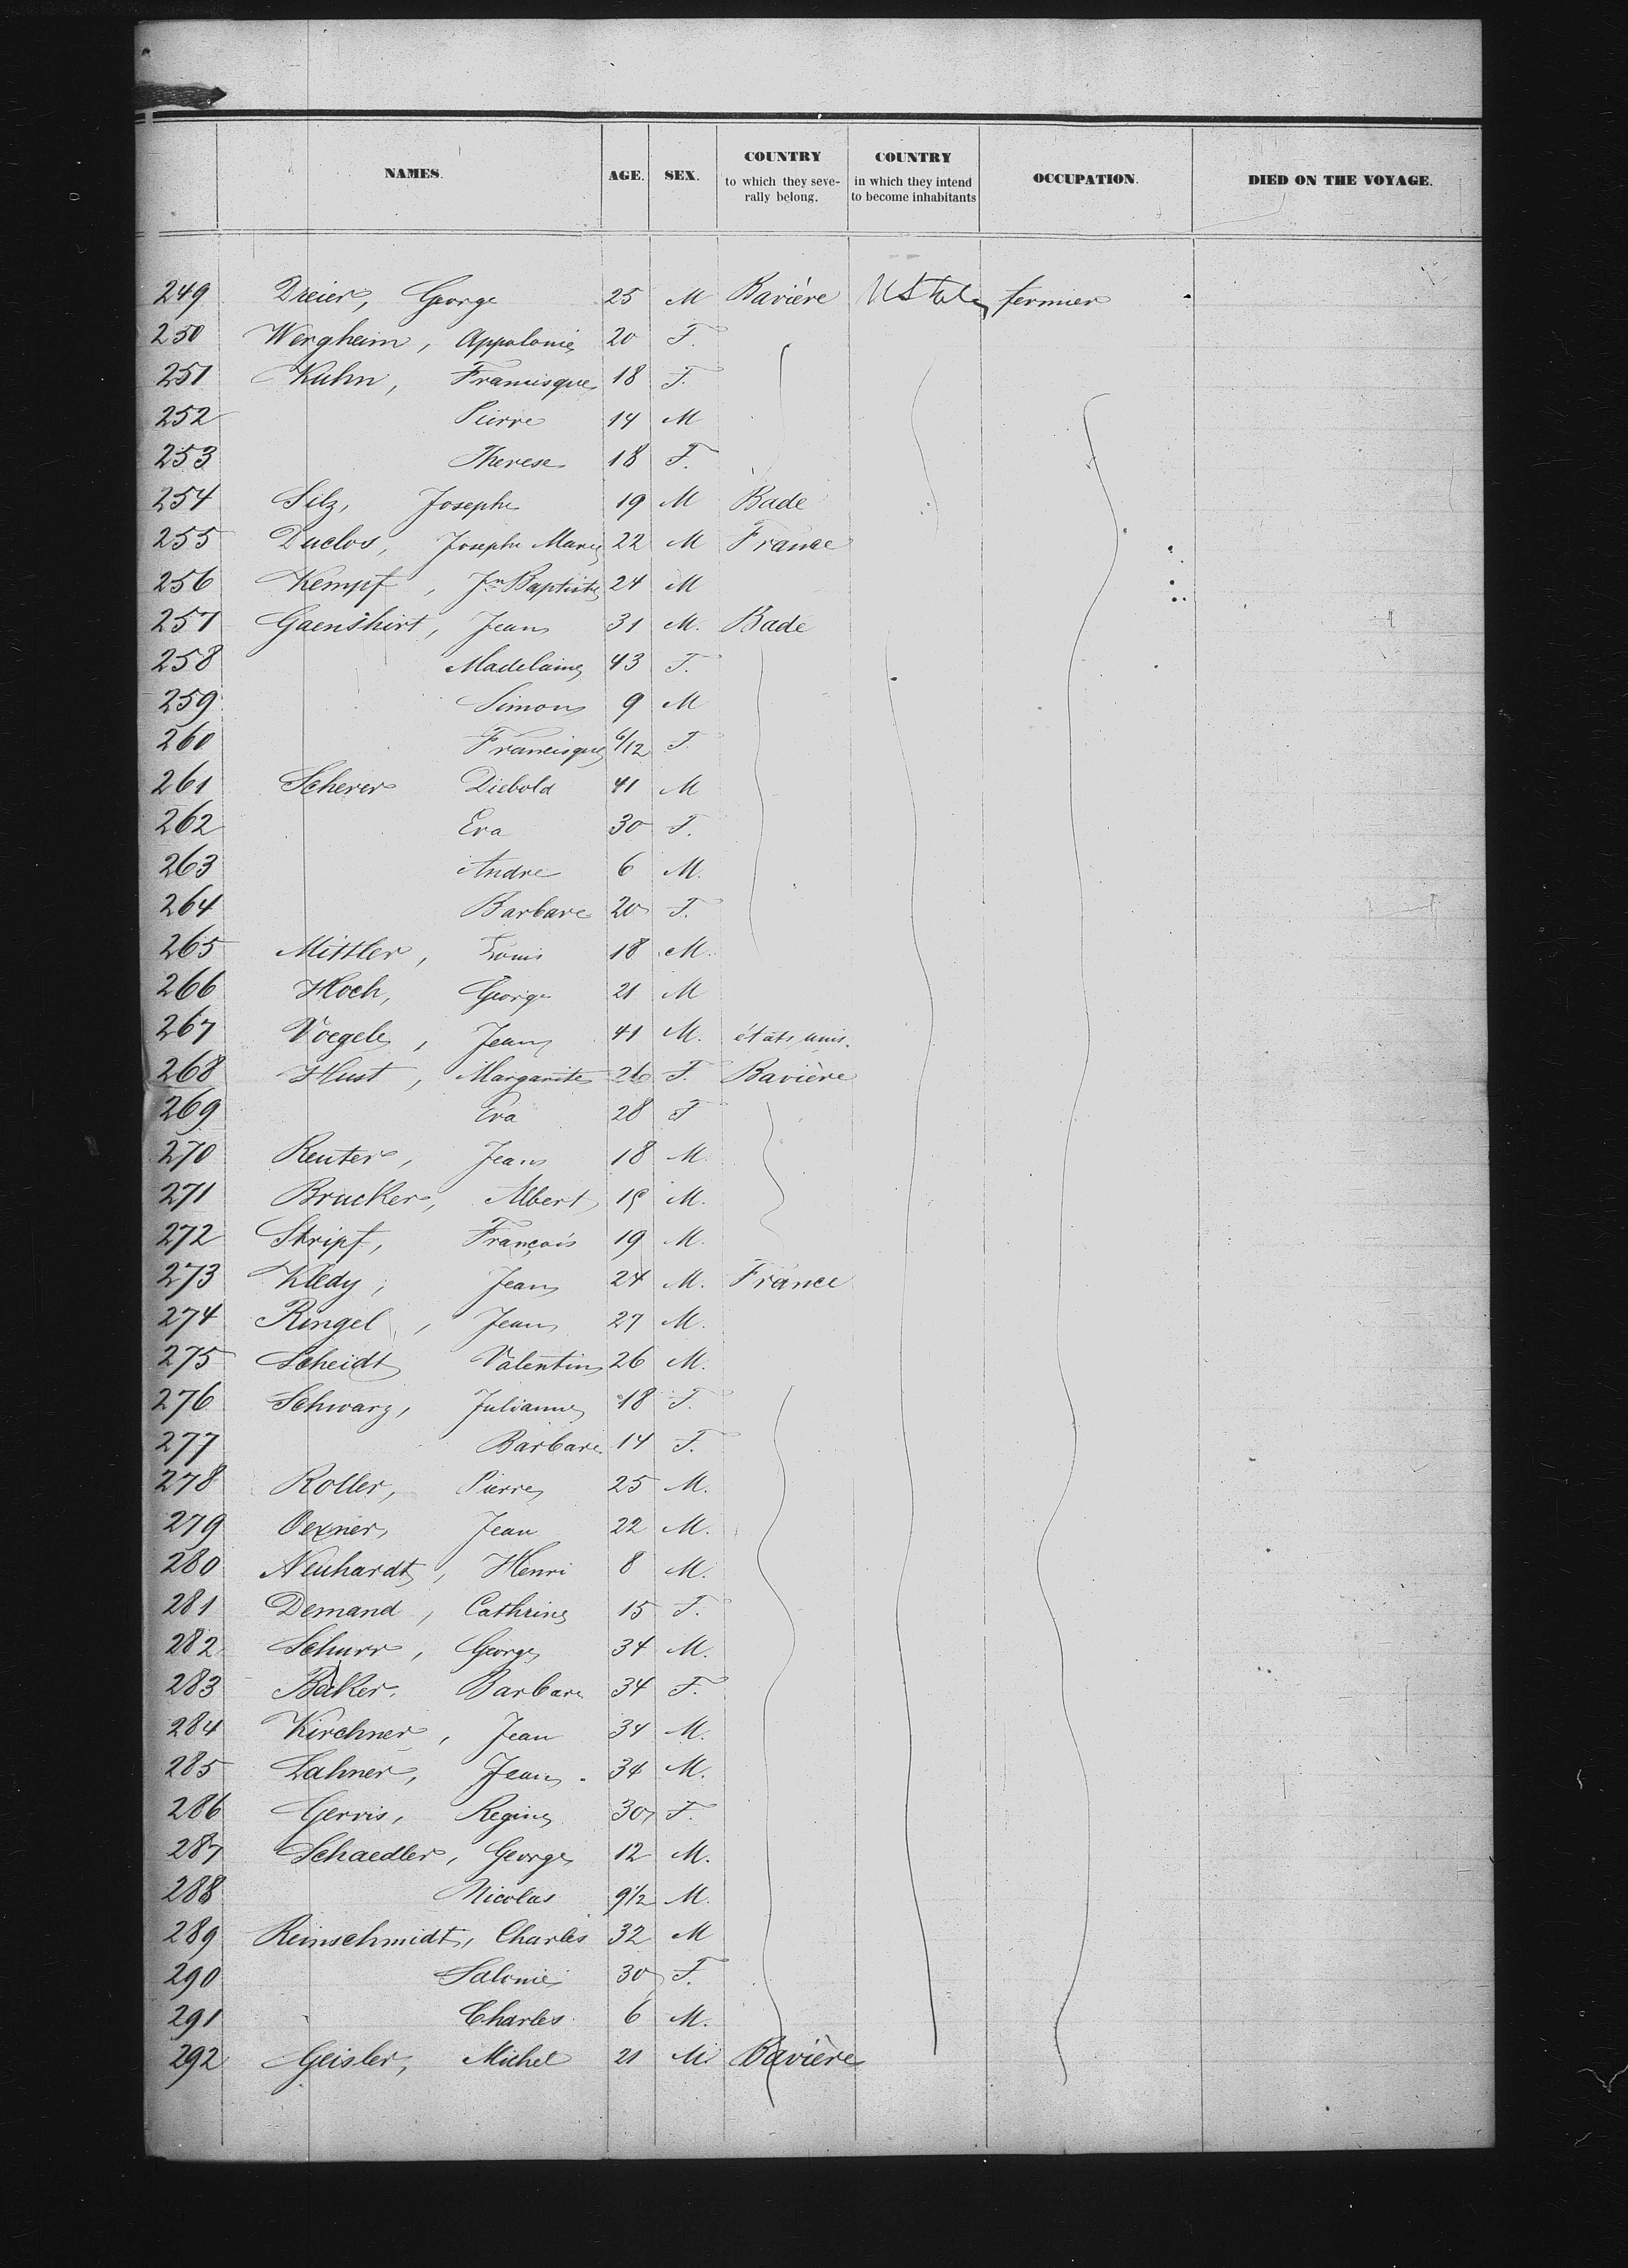 NAMES. AGE. SEX. COUNTRY to which they seve-rally belong. COUNTRY in which they intend to become inhabitants OCCUPATION. DIED ON THE VOYAGE.
249 Dreier, George 25 M Bavière fermier
250 Wergheim, Appolonie 20 F.
251 Kuhn, Francisque 18 F.
252 Pierre 14 M
253 Therese 18 F.
254 Silz, Joseph 19 M Bade
255 Duclos, Joseph Marie 22 M France
256 Kempf, Jn Baptiste 24 M
257 Gaenshirt, Jean 31 M. Bade
258 Madelaine 43 F.
259 Simon 9 M
260 Francisque 6/12 F.
261 Scherer Diebold 41 M
262 Eva 30 F.
263 Andre 6 M.
264 Barbare 20 F.
265 Mittler, Louis 18 M.
266 Hoch, George 21 M
267 Voegele, Jean 41 M. états unis.
268 Hust, Margarite 26 F. Bavière
269 Eva 28 F
270 Reuter, Jean 18 M.
271 Brucker, Albert M.
272 Stripf, François 19 M.
273 Kledy, Jean 24 M. France
274 Ringel, Jean 27 M.
275 Scheidt Valentin 26 M.
276 Schwarz, Julianne 18 F.
277 Barbare 14 F.
278 Roller, Pierre 25 M.
279 Oexner, Jean 22 M.
280 Neuhardt, Henri 8 M.
281 Demand, Cathrine 15 F.
282 Schurr, George 34 M.
283 Baker, Barbare 34 F.
284 Kirchner, Jean 34 M.
285 Lahner, Jean 34 M.
286 Gervis, Regine 30 F.
287 Schaedler, George 12 M.
288 Nicolas 9 1/2 M.
289 Reinschmidt, Charles 32 M
290 Salomé 30 F.
291 Charles 6 M.
292 Geisler, Michel 21 M. Bavière